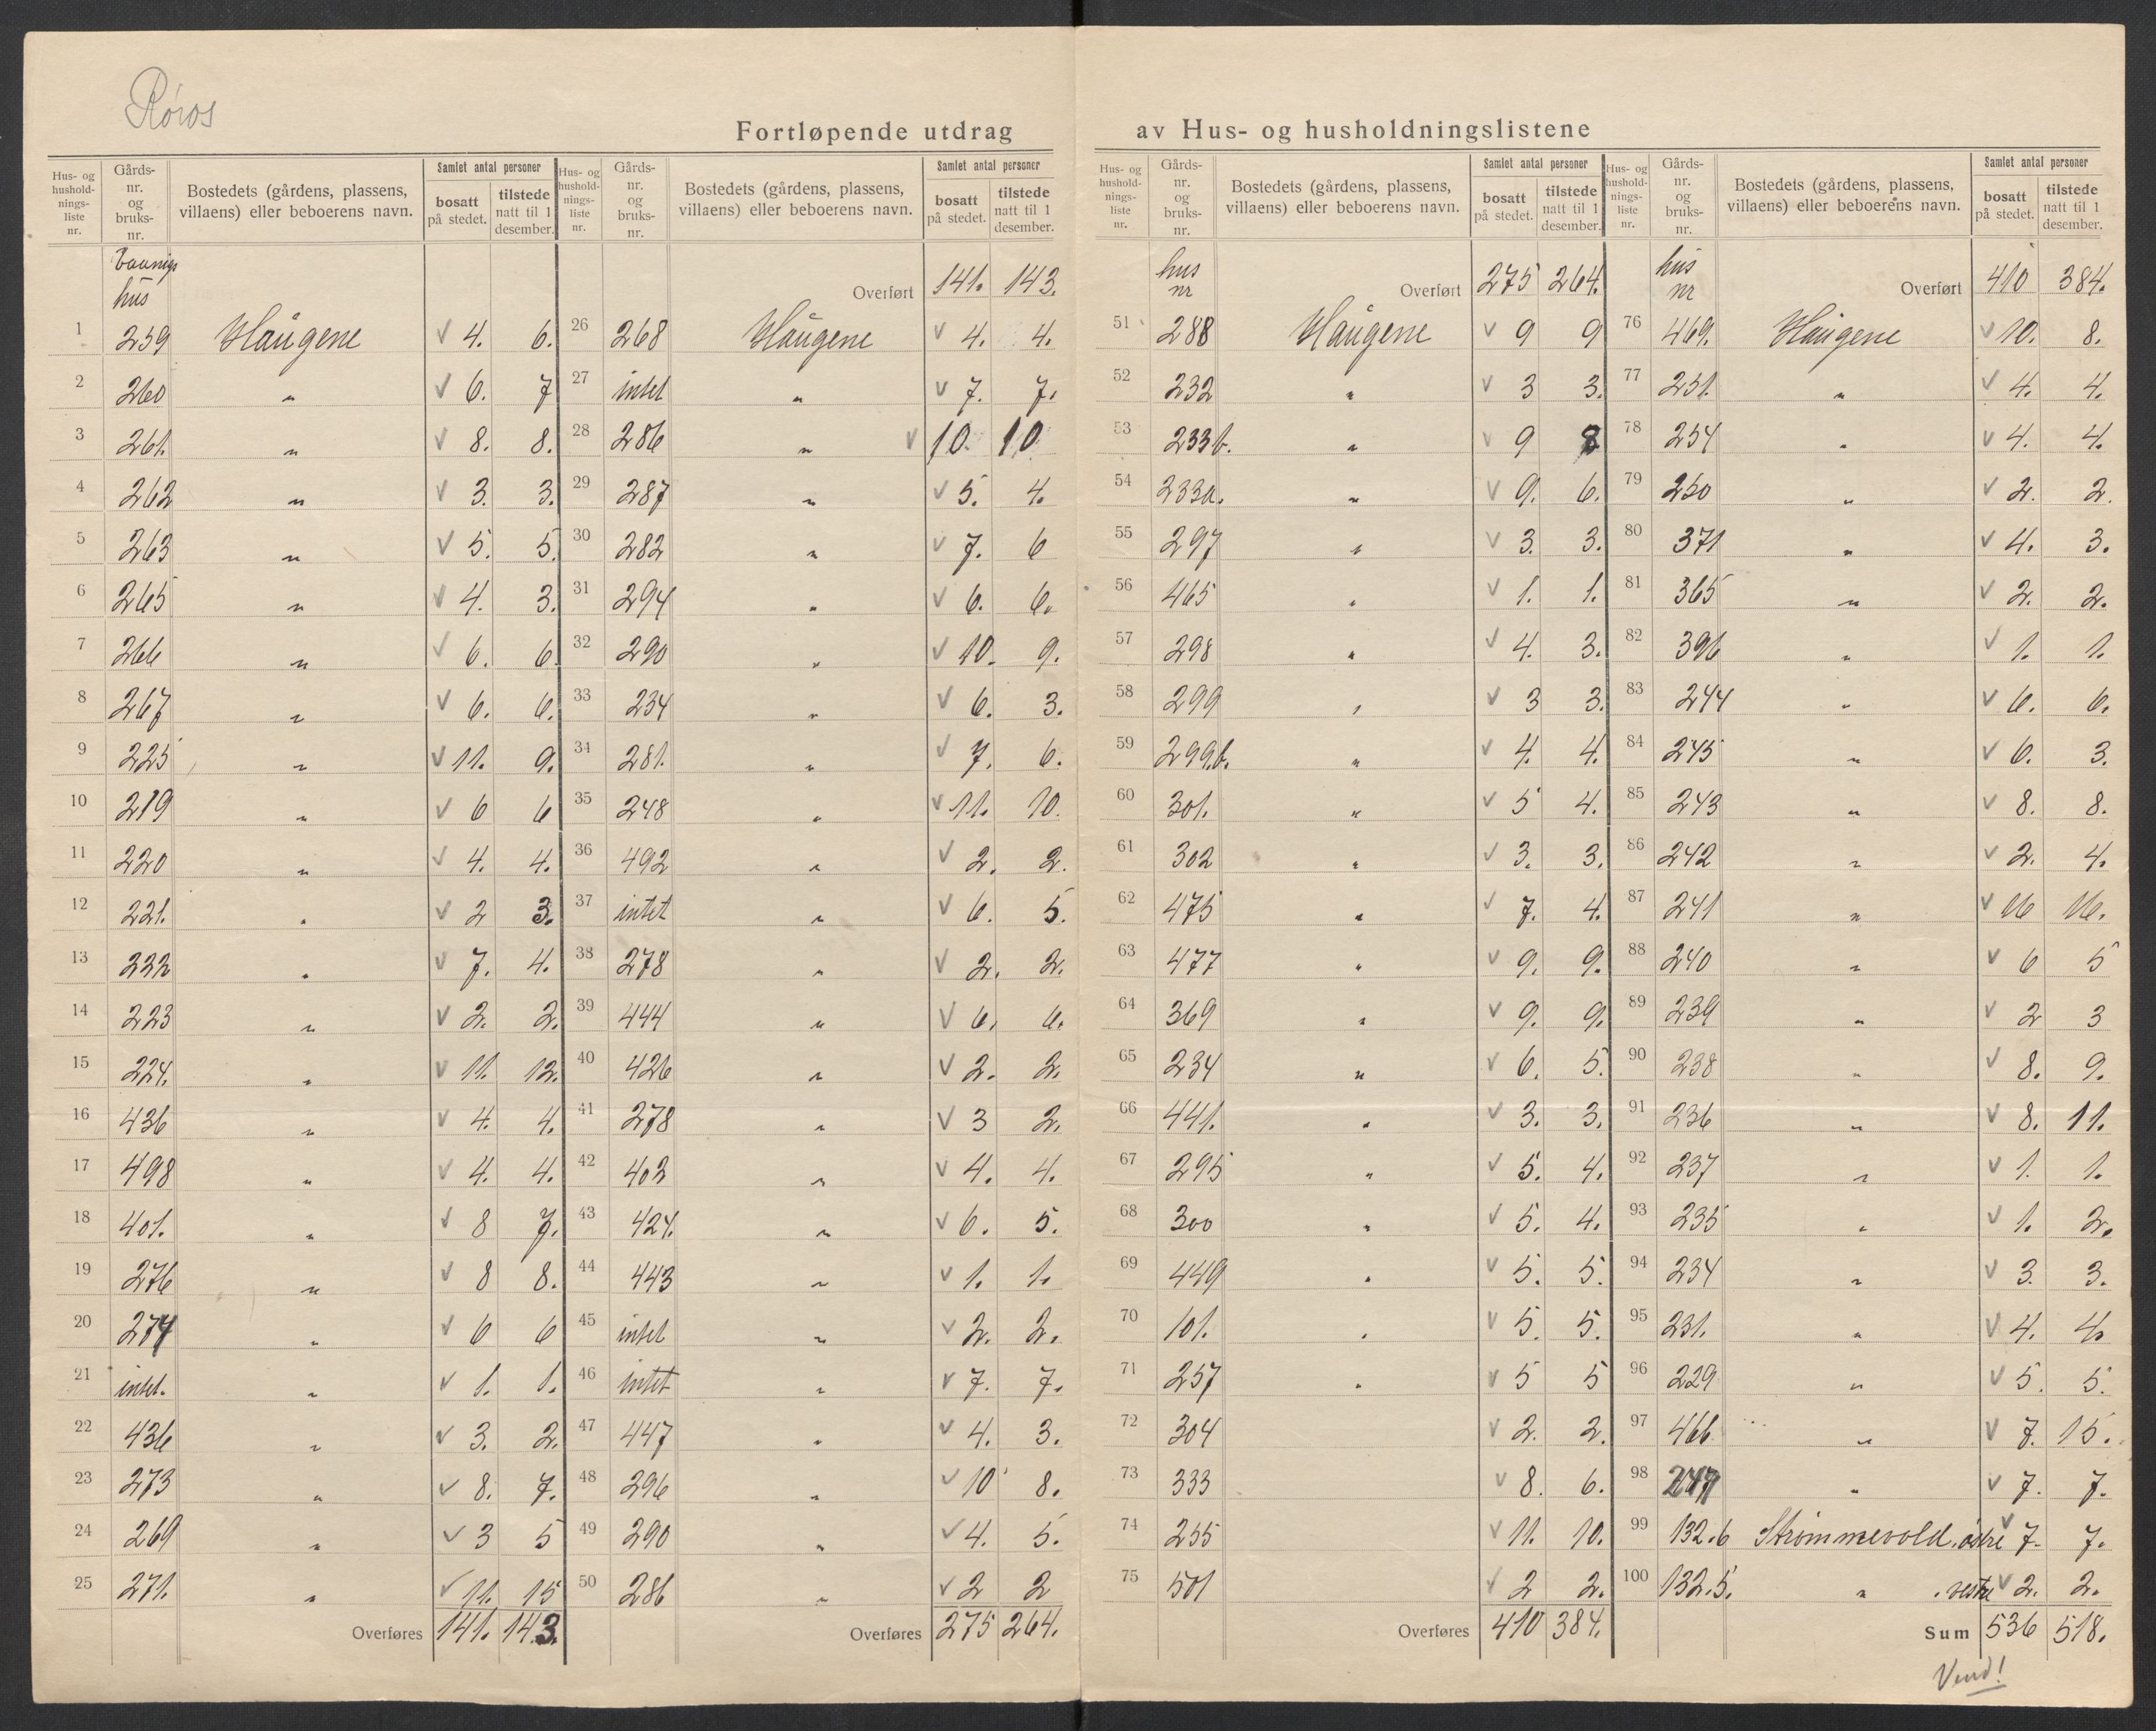 Røros
Fortløpende utdrag av Hus- og husholdningslistene
Hus- og hushold-nings-liste nr. Gårds-nr. og bruks-nr. Bostedets (gårdens, plassens, villaens) eller beboerens navn. Samlet antal personer bosatt på stedet. tilstede natt til 1 desember.
hus
1 259 Haugene √ 4. 6.
2 260 " √ 6. 7
3 261. " √ 8. 8.
4 262 " √ 3. 3.
5 263 " √ 5. 5.
6 265 " √ 4. 3.
7 266 " √ 6. 6.
8 267 " √ 6. 6.
9 225 " √ 11. 9.
10 219 " √ 6 6
11 220 " √ 4. 4.
12 221. " √ 2 3.
13 222 " √ 7. 4.
14 223 " √ 2. 2.
15 224. " √ 11. 12.
16 436 " √ 4. 4.
17 498 " √ 4. 4.
18 401. " √ 8 7.
19 276 " √ 8 8.
20 274 " √ 6 6
21 intet. " √ 1. 1.
22 436 " √ 3. 2.
23 273 " √ 8. 7.
24 269 " √ 3 5
25 271. " √ 11. 15
Overføres 141. 143.
Hus- og hushold-nings-liste nr. Gårds-nr. og bruks-nr. Bostedets (gårdens, plassens, villaens) eller beboerens navn. Samlet antal personer bosatt på stedet. tilstede natt til 1 desember.
Overført 141. 143.
26 268 Haugene √ 4. 4.
27 intet " √ 7. 7.
28 286 " √ 10. 10
29 287 " √ 5. 4.
30 282 " √ 7. 6
31 294 " √ 6. 6.
32 290 " √ 10. 9.
33 234 " √ 6. 3.
34 281. " √ 7. 6.
35 248 " √ 11. 10.
36 492 " √ 2. 2.
37 intet " √ 6. 5.
38 278 " √ 2. 2.
39 444 " √ 6. 6.
40 426 " √ 2. 2.
41 278 " √ 3 2.
42 403 " √ 4. 4.
43 424. " √ 6. 5.
44 443 " √ 1. 1.
45 intet " √ 2. 2.
46 intet " √ 7. 7.
47 447 " √ 4. 3.
48 296 " √ 10 8.
49 290 " √ 4. 5.
50 286 " √ 2 2
Overføres 275 264.
Hus- og hushold-nings-liste nr. Gårds-nr. og bruks-nr. Bostedets (gårdens, plassens, villaens) eller beboerens navn. Samlet antal personer bosatt på stedet. tilstede natt til 1 desember.
hus nr Overført 275 264.
51 288 Haugene √ 9 9
52 232 " √ 3 3.
53 233b. " √ 9 8
54 233a. " √ 9. 6.
55 297 " √ 3. 3.
56 465 " √ 1. 1.
57 298 " √ 4. 3.
58 299 " √ 3 3.
59 299.b. " √ 4. 4.
60 301. " √ 5 4.
61 302 " √ 3. 3.
62 475 " √ 7. 4.
63 477 " √ 9. 9.
64 369 " √ 9. 9.
65 234 " √ 6. 5.
66 441. " √ 3. 3.
67 295 " √ 5. 4.
68 300 " √ 5. 4.
69 449 " √ 5. 5.
70 101. " √ 5. 5.
71 257 " √ 5 5
72 304 √ 2. 2.
73 333 √ 8. 6.
74 255 √ 11. 10.
75 501 √ 2 2.
Overføres 410 384.
Hus- og hushold-nings-liste nr. Gårds-nr. og bruks-nr. Bostedets (gårdens, plassens, villaens) eller beboerens navn. Samlet antal personer bosatt på stedet. tilstede natt til 1 desember.
hus nr Overført 410 384.
76 469. Haugene √ 10. 8.
77 251. " √ 4. 4.
78 254 " √ 4. 4.
79 250 " √ 2. 2.
80 371 " √ 4. 3.
81 365 " √ 2. 2.
82 396 " √ 1. 1.
83 244 " √ 6. 6.
84 245 " √ 6. 3.
85 243 " √ 8. 8.
86 242 " √ 2. 4.
87 241 " √ 16 16.
88 240 " √ 6 5
89 239 " √ 2 3
90 238 " √ 8. 9.
91 236 " √ 8. 11.
92 237 " √ 1. 1.
93 235 " √ 1. 2.
94 234 " √ 3. 3.
95 231. " √ 4. 4.
96 229 " √ 5. 5.
97 466 " √ 7. 15.
98 " √ 7. 7.
99 132.6 Strømmevold. østre √ 7. 7.
100 132.5. " . vestre √ 2. 2.
Sum 536 518.
Vend!